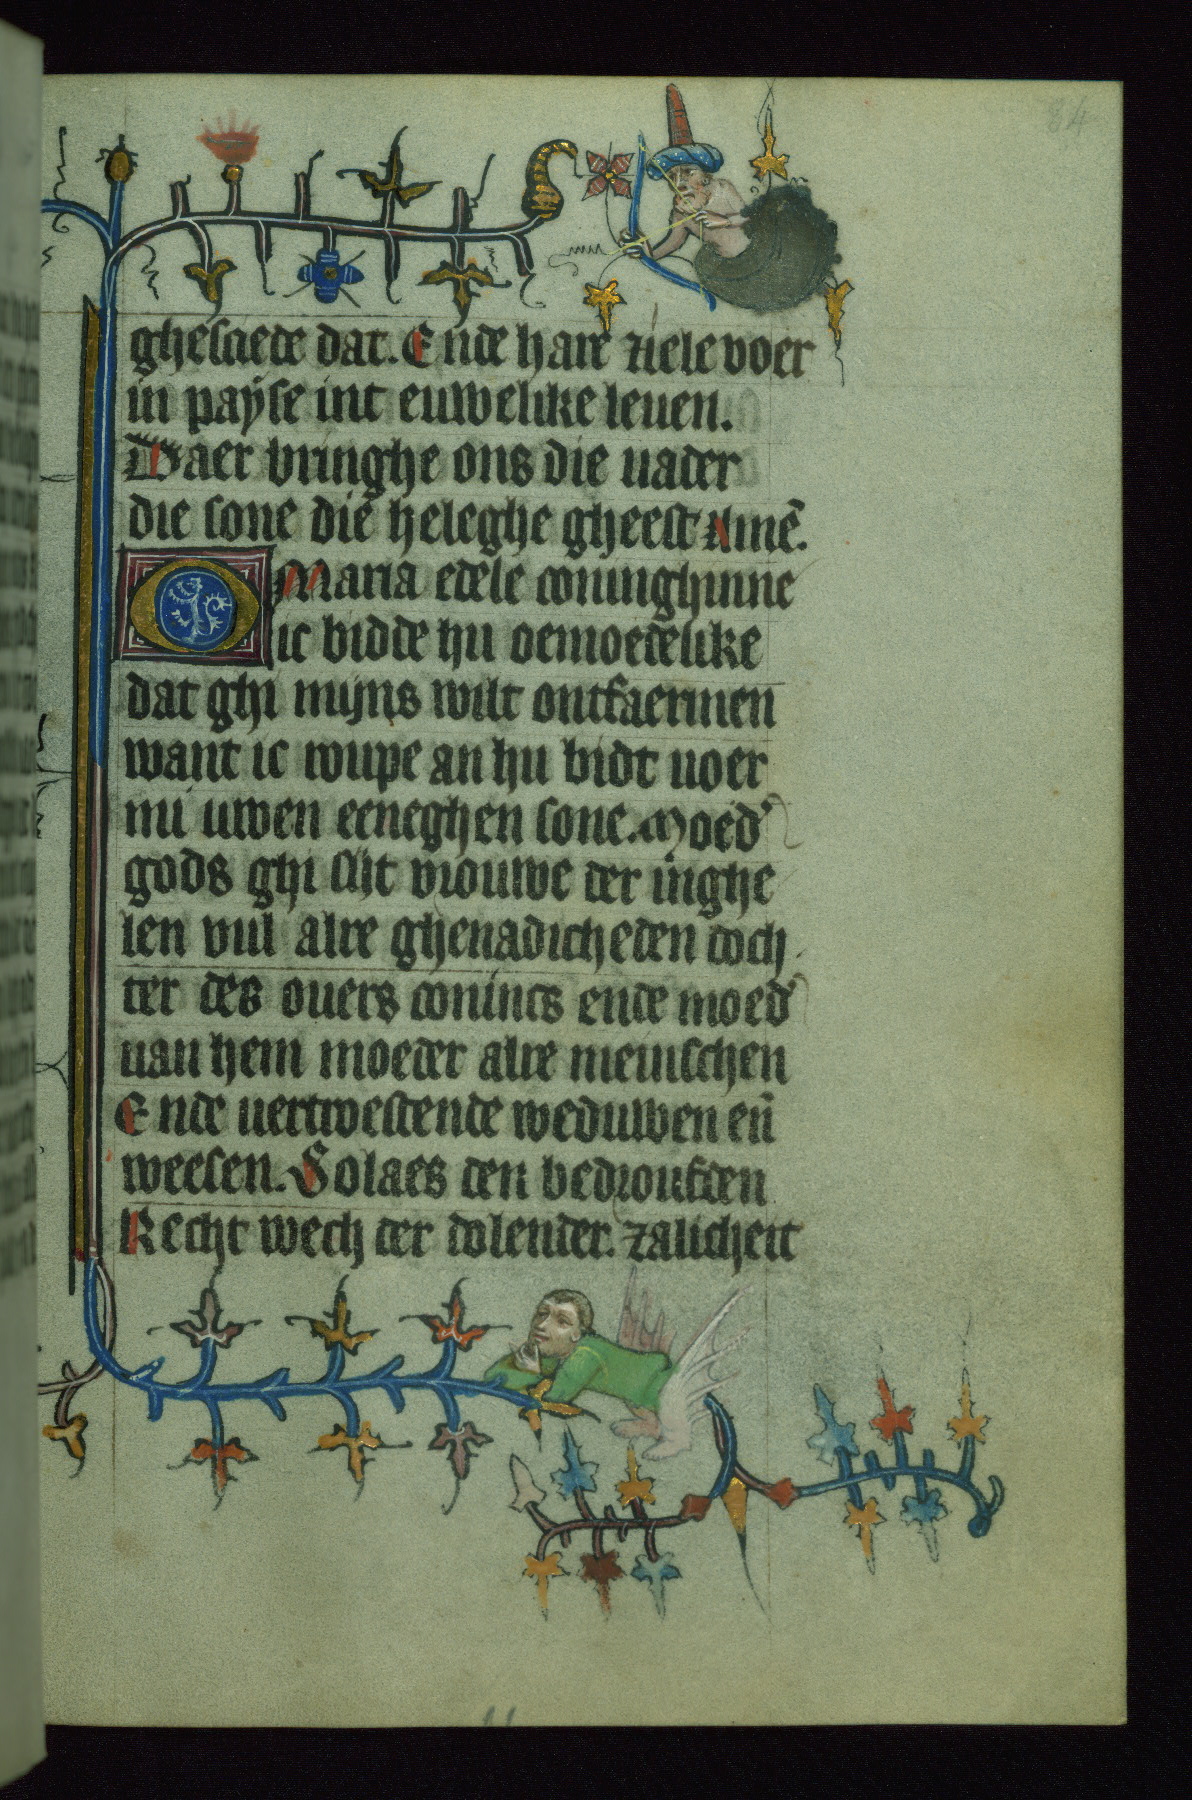 84
ghesciede dat. Ende hare ziele voer
in payse int euwelike leuen.
Daer bringhe ons die uader
die sone die heleghe gheest Amē.
O Maria edele coninghinne
ic bidde hu oemoedelike
dat ghi mijns wilt ontfaermen
want ic roupe an hu bidt uoer
mi uwen eeneghen sone. Moed'
gods ghi sijt vrouwe der inghe
len vul alre ghenadicheden doch
ter des ouers conincs ende moed'
uan hem moeder alre menschen
Ende uertroestende weduwen eñ
weesen. Solaes den bedroufden
Recht wech der dolender. zalicheit